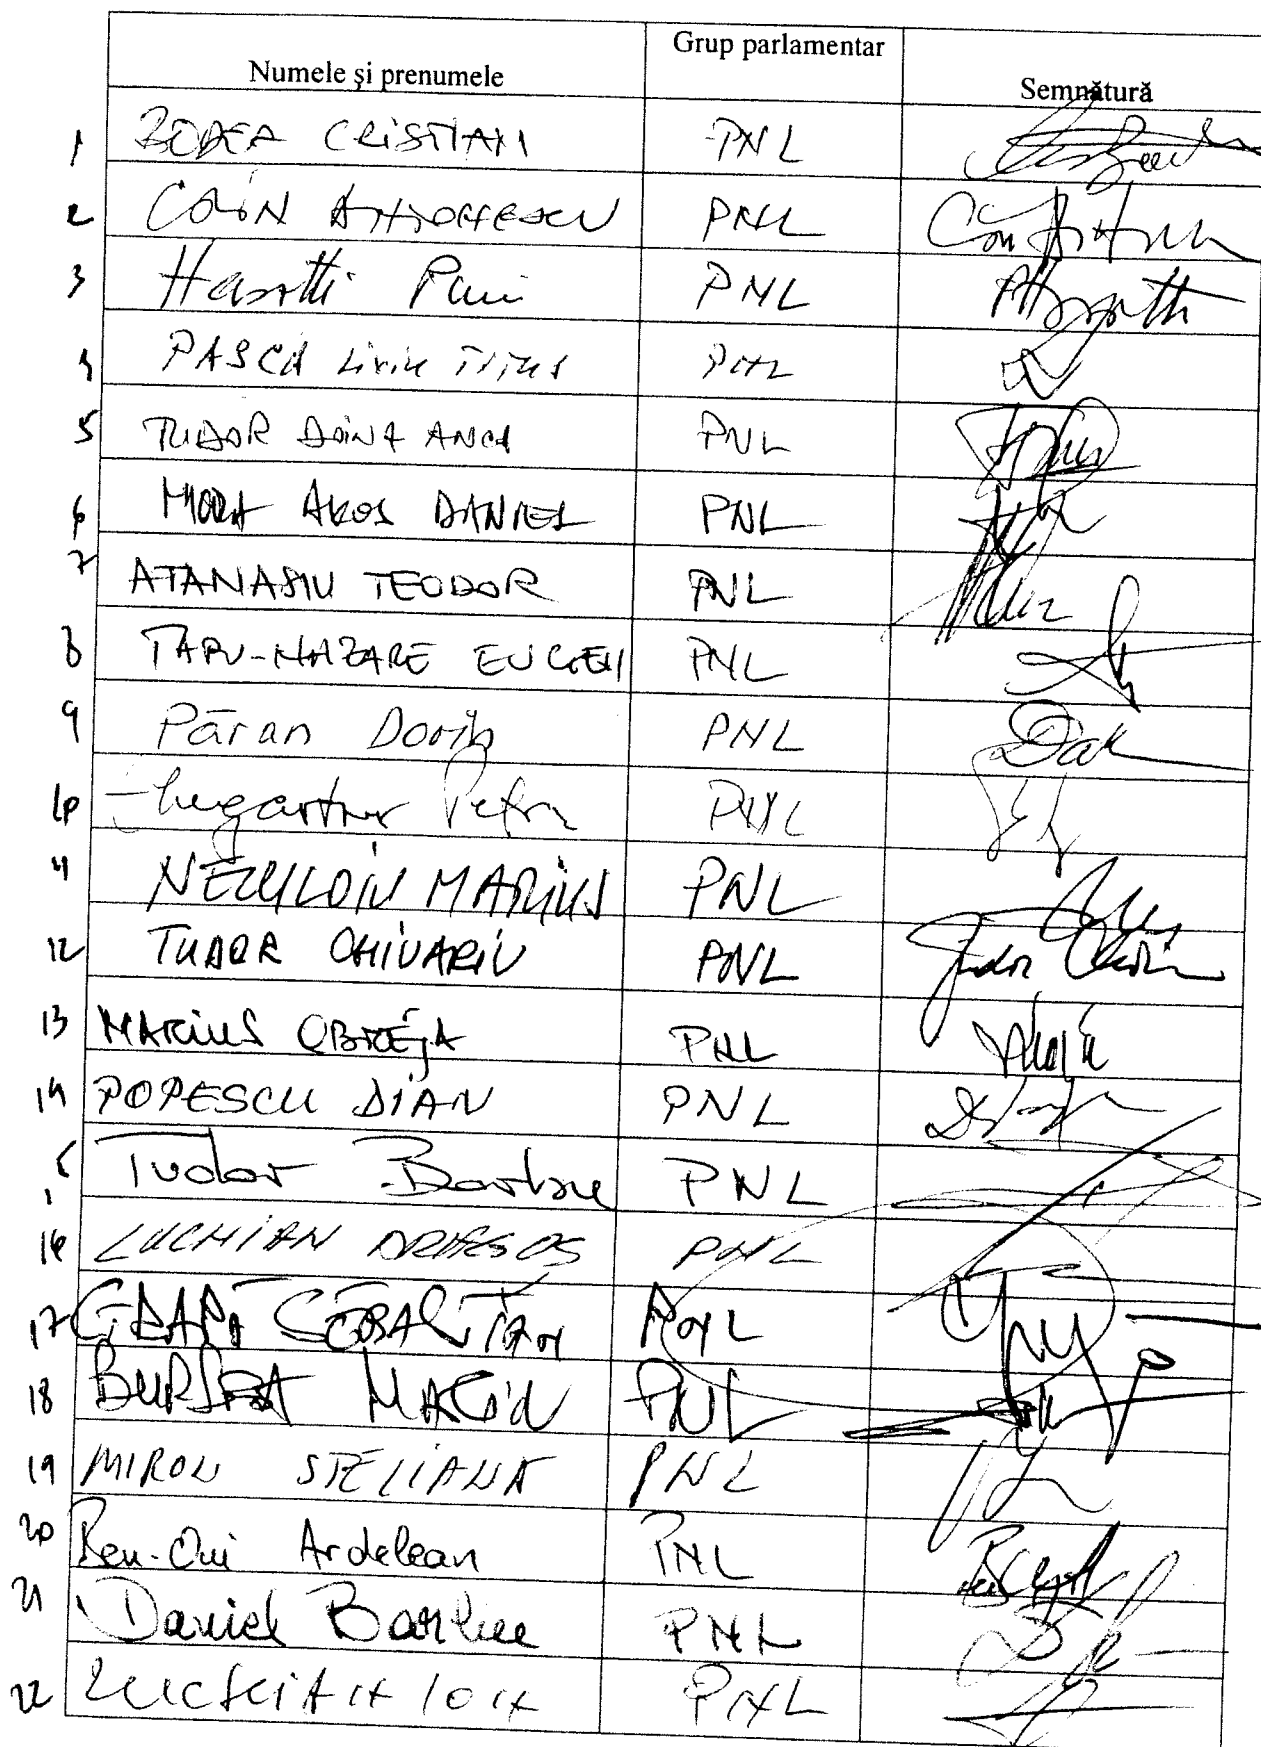 Numele şi prenumele Grup parlamentar Semnătură
1 BODEA CRISTIAN PNL
2 CĂLIN ANTONESCU PNL
3 Hasotti Puiu PNL
4 PASCA Liviu TITUS PNL
5 TUDOR DOINA ANCA PNL
6 MORA AKOS DANIEL PNL
7 ATANASIU TEODOR PNL
8 TAPU-NAZARE EUGEN PNL
9 Păran Dorin PNL
10 Petru PNL
11 NECULOIU MARIUS PNL
12 TUDOR CHIUARIU PNL Tudor
13 MARIUS OBREJA PNL
14 POPESCU DIAN PNL
15 Tudor Barbu PNL
16 LUCHIAN DRAGOS PNL
17 GRAPĂ SEBASTIAN PNL
18 BURSEA MARIN PNL
19 MIRON STELIANA PNL
20 Ben-Oni Ardelean PNL
21 Daniel Barbu PNL
22 LUCHIAN ION PNL